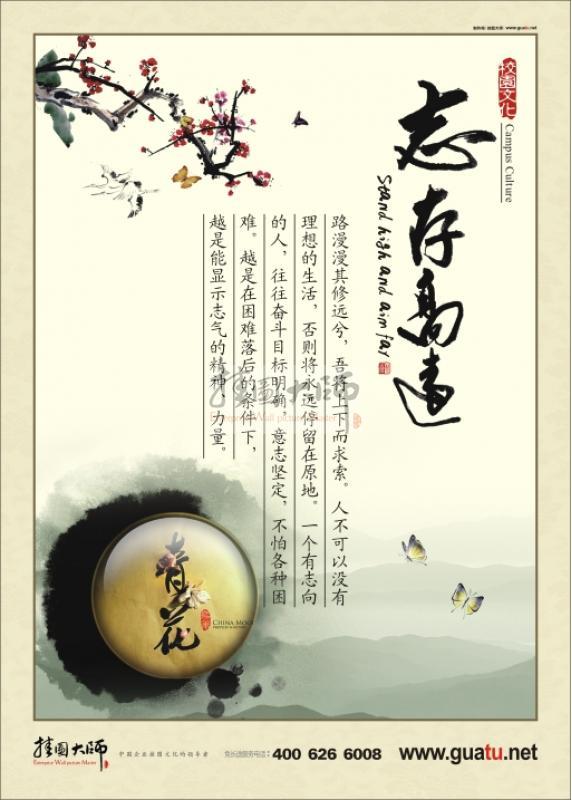 www.guatu.net
校园文化
Campus Culture
志存高远
Stand high and aim far
路漫漫其修远兮，吾将上下而求索。人不可以没有
理想的生活，否则将永远停留在原地。一个有志向
的人，往往奋斗目标明确，意志坚定，不怕各种困
难。越是在困难落后的条件下，
越是能显示志气的精神力量。
挂图大师
Enterprise Wall picture Master
青花
挂图大师
Enterprise Wall picture Master
中国企业挂图文化的领导者
400 626 6008
www.guatu.net